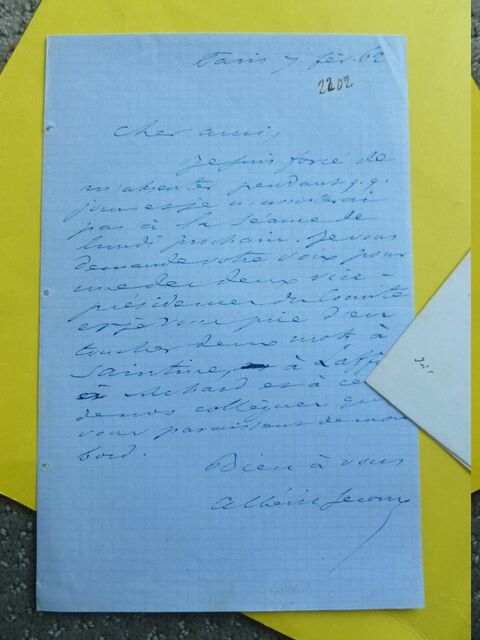 Paris 7 fév. 62
2202
Cher ami,
Je suis forcé de
m'absenter pendant q.q.
jours et je n'assisterai
pas à la séance de
lundi prochain. Je vous
demande votre voix pour
une des deux vice-
présidences du Comité
et je vous prie d'en
toucher deux mots à
Saintine, à Laff
à Achard et à ce
de nos collègues qui
vous paraissent de mon
bord.
Bien à vous
Albéric Second